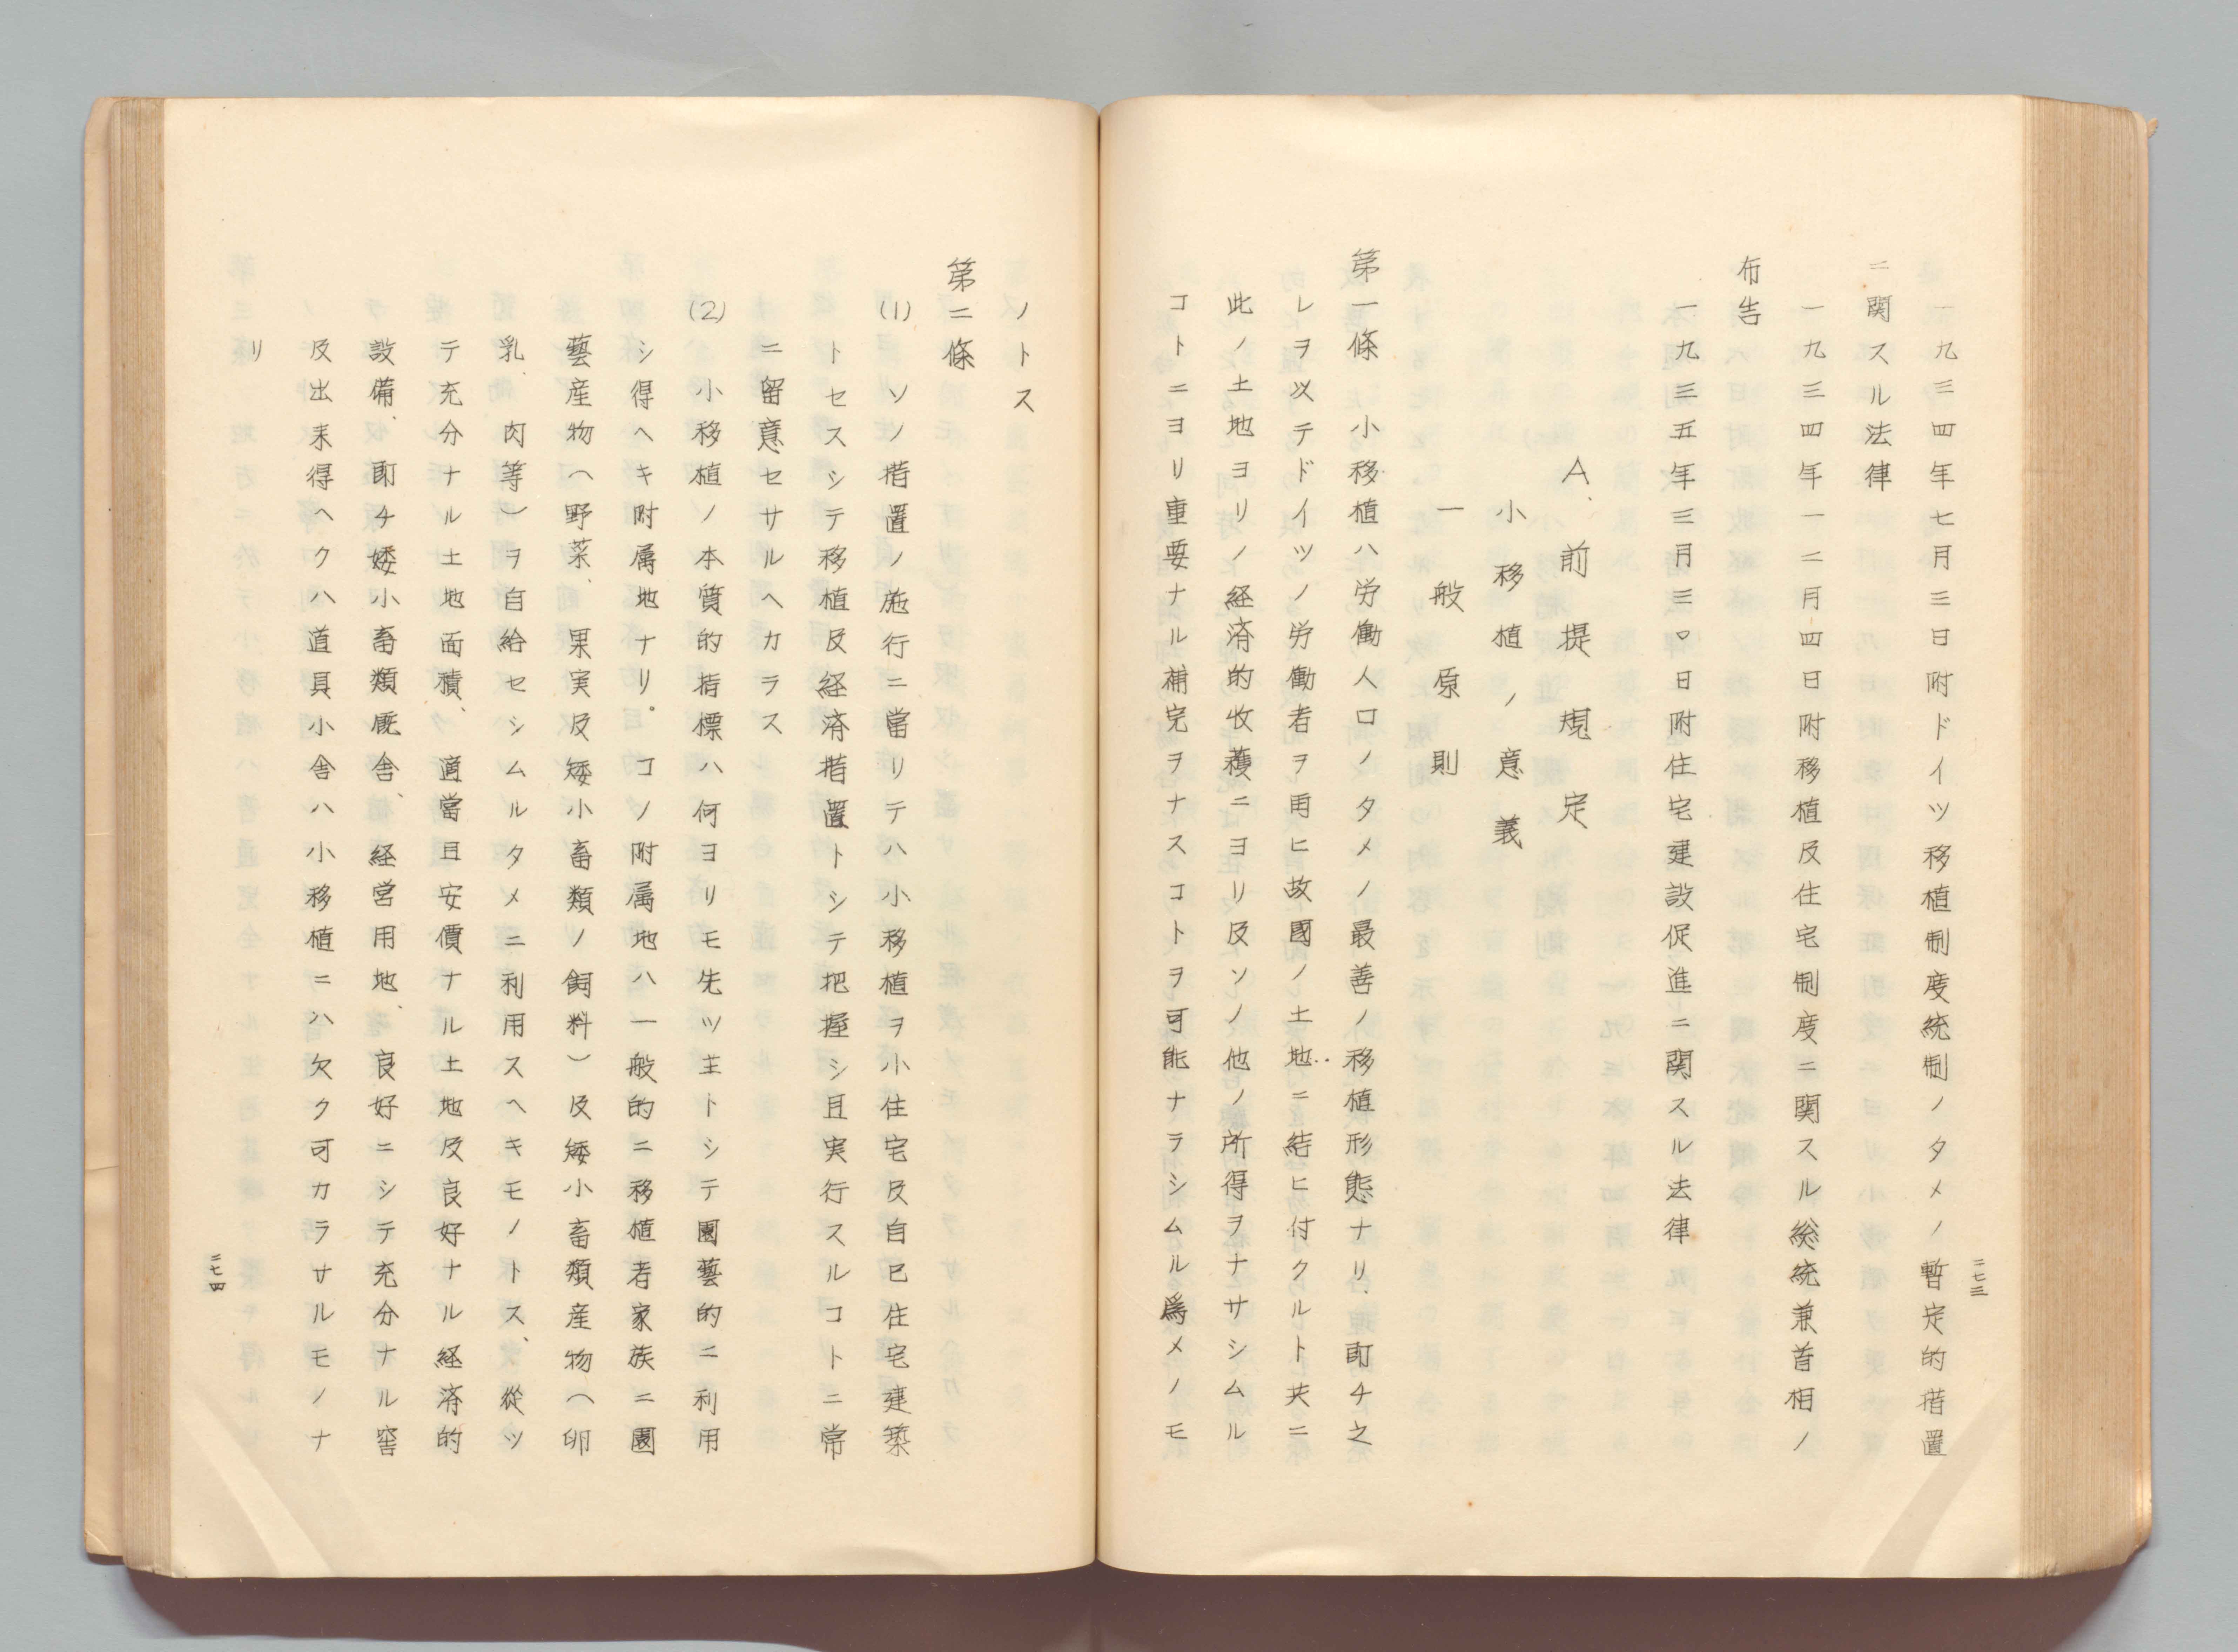 一九三四年七月三日附ドイツ移植制度統制ノタメノ暫定的措置
ニ関スル法律
一九三四年一二月四日附移植及住宅制度ニ関スル総統兼首相ノ
布告
一九三五年三月三〇日附住宅建設促進ニ関スル法律
A、前提規定
小移植ノ意義
一般原則
第一條　小移植ハ労働人口ノタメノ最善ノ移植形態ナリ、即チ之
レヲ以テドイツノ労働者ヲ再ヒ故國ノ土地ニ結ヒ付クルト共ニ
此ノ土地ヨリノ経済的收穫ニヨリ及ソノ他ノ所得ヲナサシムル
コトニヨリ重要ナル補完ヲナスコトヲ可能ナラシムル為メノモ
二七三
ノトス
第二條
(1)　ソノ措置ノ施行ニ當リテハ小移植ヲ小住宅及自己住宅建築
トセスシテ移植及経済措置トシテ把握シ且実行スルコトニ常
ニ留意セサルヘカラス
(2)　小移植ノ本質的指標ハ何ヨリモ先ツ主トシテ園藝的ニ利用
シ得ヘキ附属地ナリ。コノ附属地ハ一般的ニ移植者家族ニ園
藝産物（野菜、果実及矮小畜類ノ飼料）及矮小畜類産物（卵
乳、肉等）ヲ自給セシムルタメニ利用スヘキモノトス、從ツ
テ充分ナル土地面積、適當且安價ナル土地及良好ナル経済的
設備、即チ矮小畜類厩舎、経営用地、良好ニシテ充分ナル窖
及出来得ヘクハ道具小舎ハ小移植ニハ欠ク可カラサルモノナ
リ
二七四